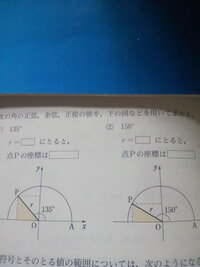 次の角の正弦，余弦，正接の値を，下の図などを用いて求めよ。
(1) 135°
(2) 150°
r=□にとると，
点Pの座標は□
r=□にとると，
点Pの座標は□
y
P
r
135°
O
A
x
y
P
r
150°
O
A
符号とそのとる値の範囲については，次のようになる